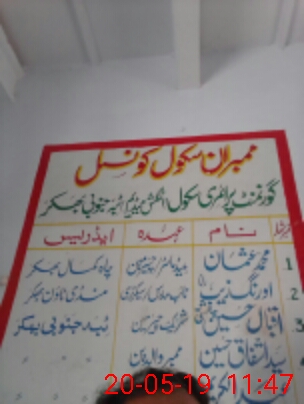 ممبران سکول کونسل
گورنمنٹ پرائمری سکول انگلش میڈیم ٹبہ جنوبی بھکر
نمبر شمار نام عہدہ ایڈریس
1 محمد عثمان ہیڈ ماسٹر چاہ کمال بھکر
2 اورنگزیب نائب منڈی ٹاؤن بھکر
3 اقبال حسین شریک چیئرمین ٹبہ جنوبی بھکر
سید اشفاق حسین ممبر والدین
20-05-19 11:47